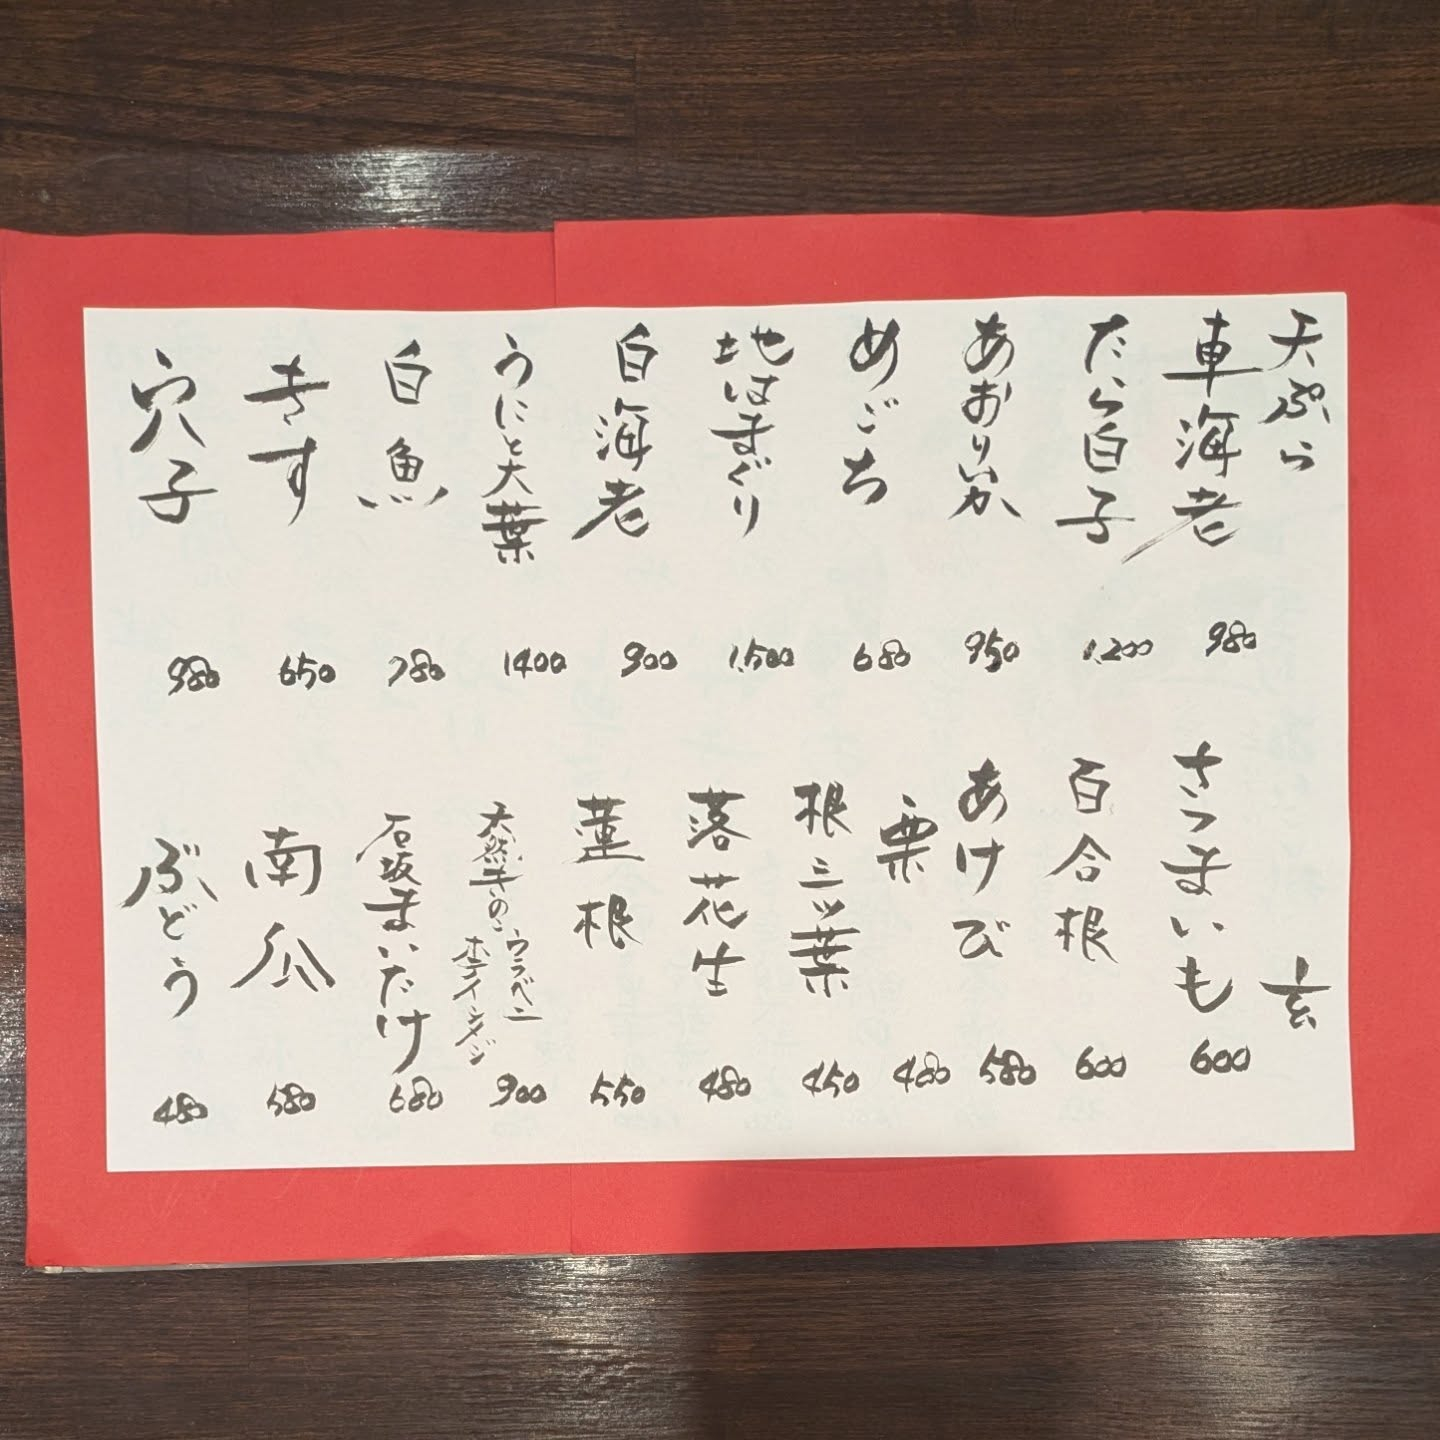 天ぷら
車海老 980
たら白子 1,200
あおりいか 950
めごち 680
地はまぐり 1,500
白海老 900
うにと大葉 1400
白魚 780
きす 650
穴子 980
玄
さつまいも 600
百合根 600
あけび 580
栗 480
根三ッ葉 450
落花生 480
蓮根 550
天然きのこ
ウラベニ
ホテイシメジ 900
石坂まいたけ 680
南瓜 580
ぶどう 480